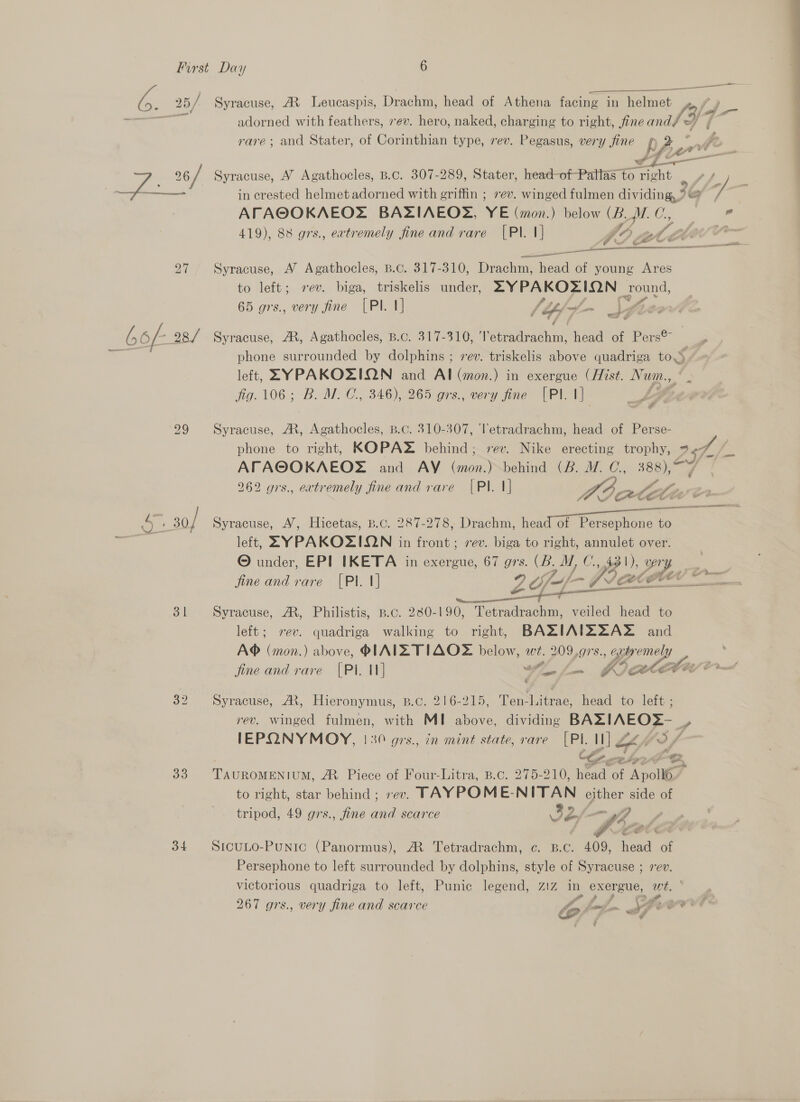 First Day 6
6. 25/ Syracuse, Æ Leucaspis, Drachm, head of Athena facing in helmet
adorned with feathers, rev. hero, naked, charging to right, fine and
rare; and Stater, of Corinthian type, rev. Pegasus, very fine
7. 26/ Syracuse, N Agathocles, B.C. 307-289, Stater, head of Pallas to right
in crested helmet adorned with griffin; rev. winged fulmen dividing,
ΑΓΑΘΟΚΛΕΟΣ ΒΑΣΙΛΕΟΣ, ΥΕ (mon.) below (B. M. C.,
419), 88 grs., extremely fine and rare [Pl. I]
27 Syracuse, N Agathocles, B.C. 317-310, Drachm, head of young Ares
to left; rev. biga, triskelis under, ΣΥΡΑΚΟΣΙΩΝ round,
65 grs., very fine [Pl. I]
66/- 28/ Syracuse, Æ, Agathocles, B.C. 317-310, Tetradrachm, head of Perse-
phone surrounded by dolphins; rev. triskelis above quadriga to
left, ΣΥΡΑΚΟΣΙΩΝ and ΑΙ (mon.) in exergue (Hist. Num.,
fig. 106; B. M. C., 346), 265 grs., very fine [Pl. I]
29 Syracuse, Æ, Agathocles, B.C. 310-307, Tetradrachm, head of Perse-
phone to right, ΚΟΡΑΣ behind; rev. Nike erecting trophy,
ΑΓΑΘΟΚΛΕΟΣ and ΑΥ (mon.) behind (B. M. C., 388),
262 grs., extremely fine and rare [Pl. I]
5. 30/ Syracuse, N, Hicetas, B.C. 287-278, Drachm, head of Persephone to
left, ΣΥΡΑΚΟΣΙΩΝ in front; rev. biga to right, annulet over.
Θ under, ΕΡΙ ΙΚΕΤΑ in exergue, 67 grs. (B. M, C., 431), very
fine and rare [Pl. I]
31 Syracuse, Æ, Philistis, B.C. 280-190, Tetradrachm, veiled head to
left; rev. quadriga walking to right, ΒΑΣΙΛΙΣΣΑΣ and
ΑΦ (mon.) above, ΦΙΛΙΣΤΙΔΟΣ below, wt. 209 grs., extremely
fine and rare [Pl. II]
32 Syracuse, Æ, Hieronymus, B.C. 216-215, Ten-Litrae, head to left;
rev. winged fulmen, with ΜΙ above, dividing ΒΑΣΙΛΕΟΣ-
ΙΕΡΩΝΥΜΟΥ, 130 grs., in mint state, rare [Pl. II]
33 TAUROMENIUM, Æ Piece of Four-Litra, B.C. 275-210, head of Apollo
to right, star behind; rev. ΤΑΥΡΟΜΕ-ΝΙΤΑΝ either side of
tripod, 49 grs., fine and scarce
34 SICULO-PUNIC (Panormus), Æ Tetradrachm, c. B.C. 409, head of
Persephone to left surrounded by dolphins, style of Syracuse; rev.
victorious quadriga to left, Punic legend, ZIZ in exergue, wt.
267 grs., very fine and scarce